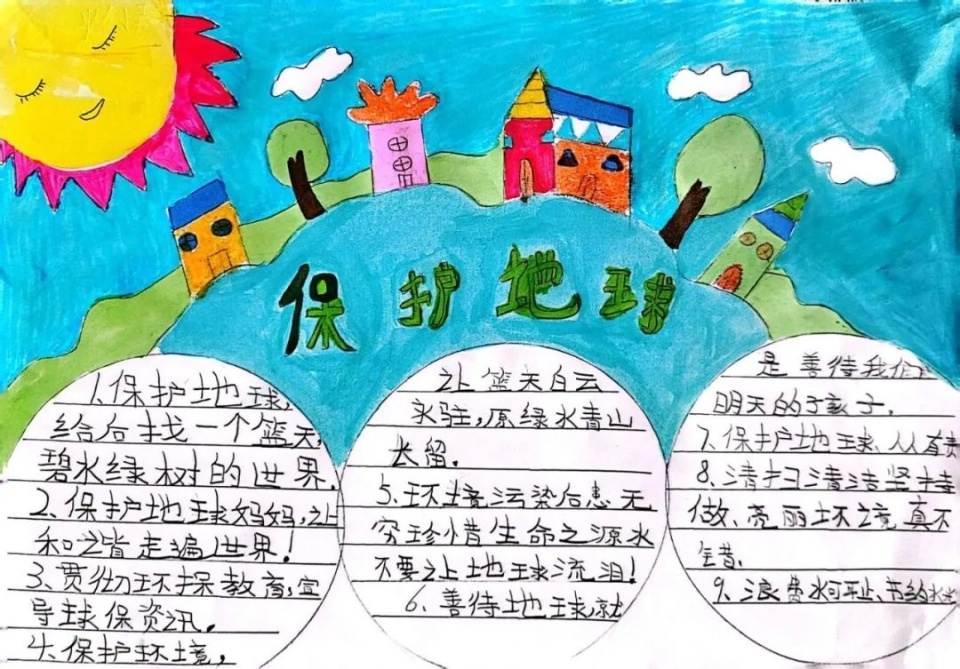 保护地球
1.保护地球,
给后找一个篮天,
碧水绿树的世界.
2.保护地球妈妈,让
和谐走遍世界!
3.贯彻环保教育,宣
导球保资讯.
4.保护环境,
让篮天白云
永驻,原绿水青山
长留.
5.环境污染后患无
穷珍惜生命之源水
不要让地球流泪!
6.善待地球就
是善待我们
明天的孩子.
7.保护地球.从
8.清扫清洁坚持
做、亮丽环境真不
错.
9.浪费可止、节约